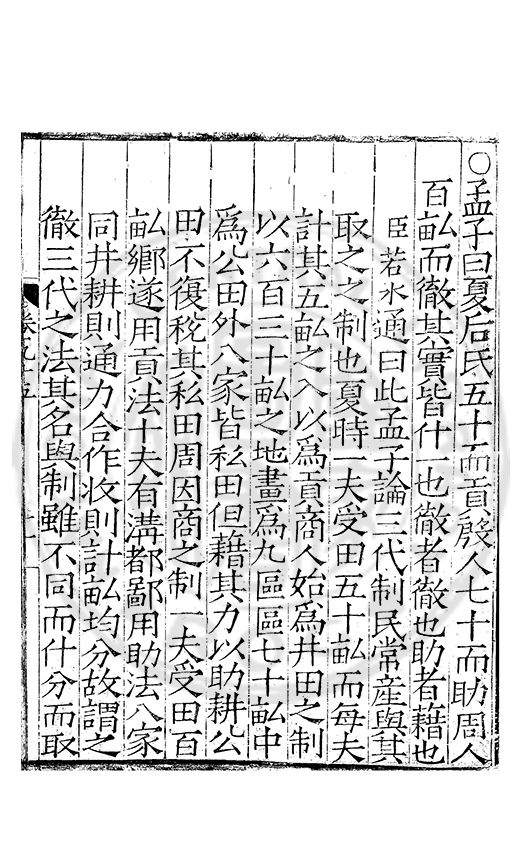 ○孟子曰夏后氏五十而貢殷人七十而助周人
百畝而徹其實皆什一也徹者徹也助者藉也
臣若水通曰此孟子論三代制民常産與其
取之之制也夏時一夫受田五十畝而每夫
計其五畝之入以爲貢商人始爲井田之制
以六百三十畝之地畫爲九區區七十畝中
爲公田外八家皆私田但藉其力以助耕公
田不復稅其私田周因商之制一夫受田百
畝鄉遂用貢法十夫有溝都鄙用助法八家
同井耕則通力合作收則計畝均分故謂之
徹三代之法其名與制雖不同而什分而取
卷九十五